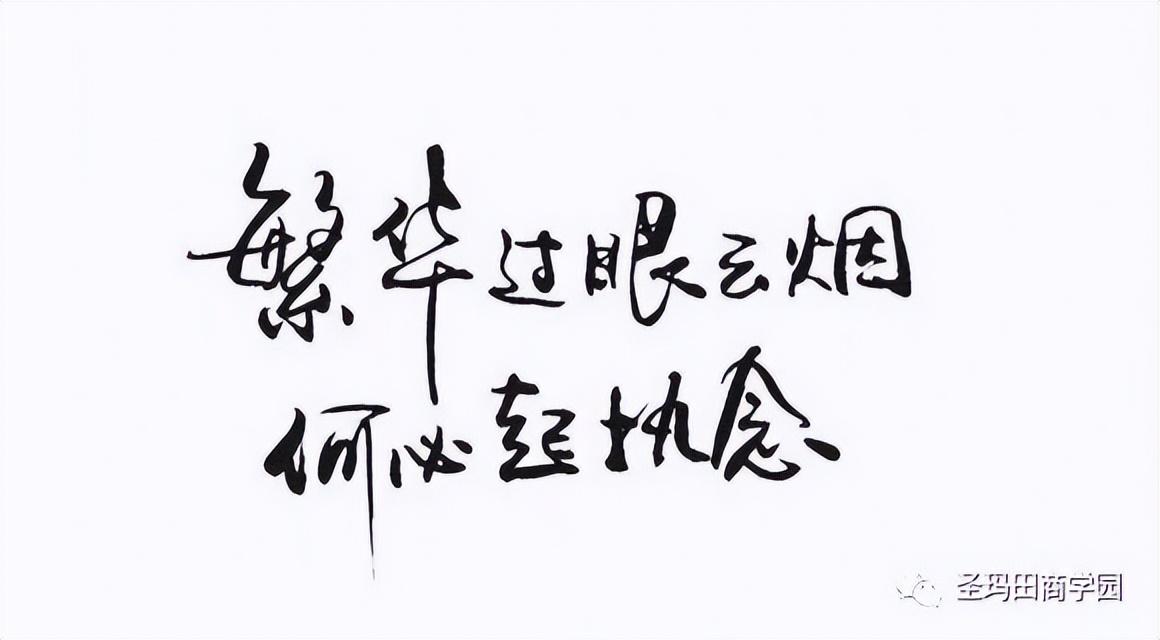 繁华过眼云烟
何必起执念
圣玛田商学园